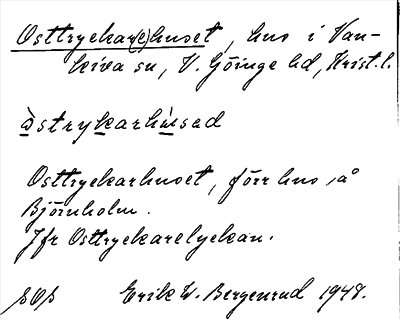 Osttryckar(e)huset, hus i Van-
kiva sn, V. Göinge hd, Krist. l.
òstrykarhùsed
Osttryckarhuset, förr hus å
Björnholm.
Jfr Osttryckarelyckan.
SOS Erik W. Bergenrud 1948.